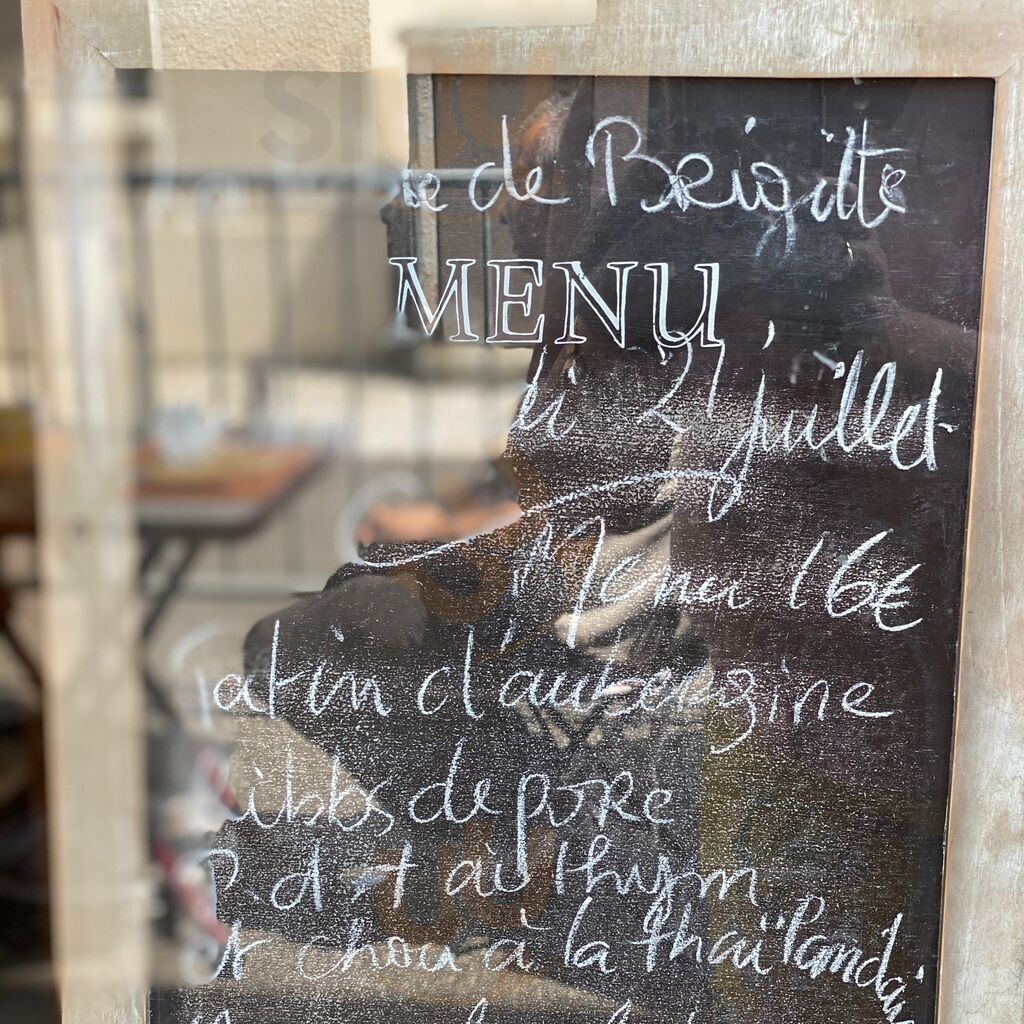 de Brigitte
MENU
di 21 juillet
Menu 16€
gratin d'aubergine
ribbs de porc
P. d t au thym
et chou à la thaïlandaise